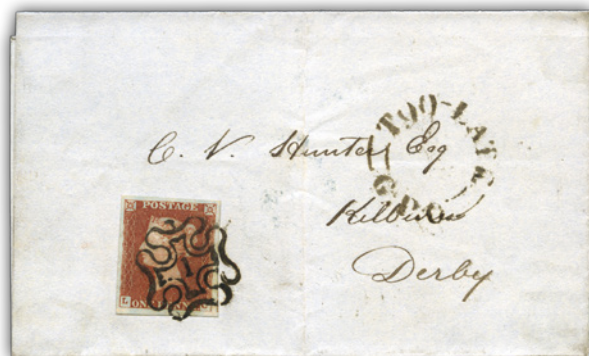 TOO-LATE
G.P.O
C. V. Hunter Esq
Kilburn
Derby
POSTAGE
1
L